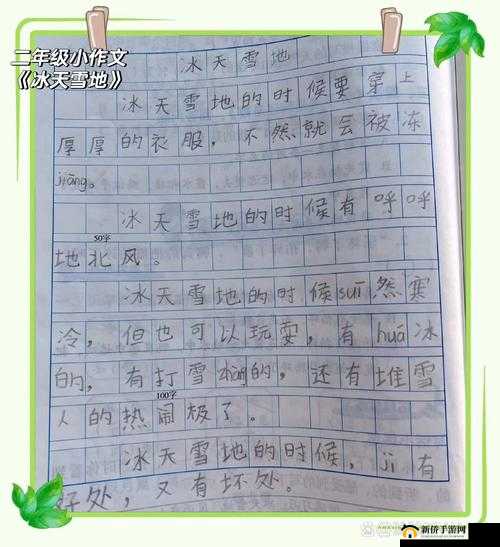 二年级小作文
《冰天雪地》
冰天雪地
冰天雪地的时候要穿上
厚厚的衣服，不然就会被冻
jiāng。
冰天雪地的时候有呼呼
50字
地北风。
冰天雪地的时候suī然寒
冷，但也可以玩耍，有huá冰
的，有打雪的，还有堆雪
100字
人的热闹极了。
冰天雪地的时候，jì有
好处，又有坏处。
新侨手游网